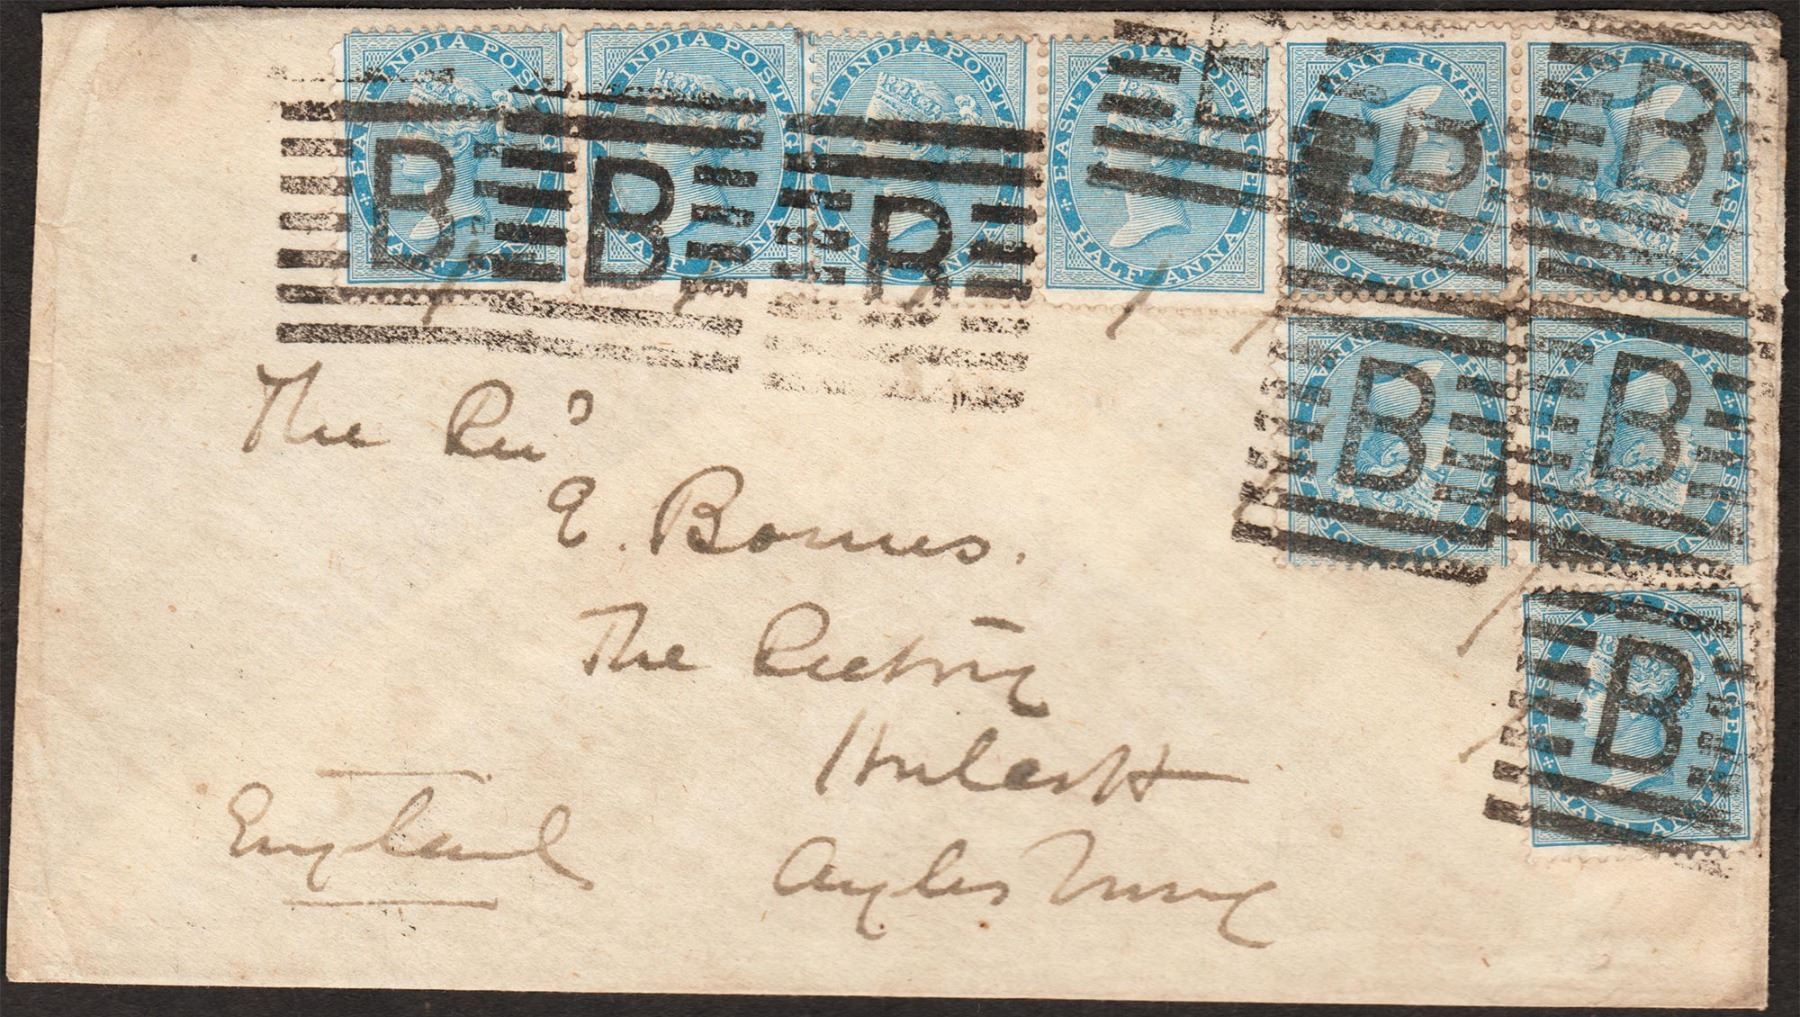 EAST INDIA POSTAGE
HALF ANNA
EAST INDIA POSTAGE
HALF ANNA
EAST INDIA POSTAGE
HALF ANNA
EAST INDIA POSTAGE
HALF ANNA
EAST INDIA POSTAGE
HALF ANNA
EAST INDIA POSTAGE
HALF ANNA
B B B B B B
EAST INDIA POSTAGE
HALF ANNA
EAST INDIA POSTAGE
HALF ANNA
B B
EAST INDIA POSTAGE
HALF ANNA
B
The Revd
E. Bonus.
The Rectory
Hulcott
Aylesbury
England